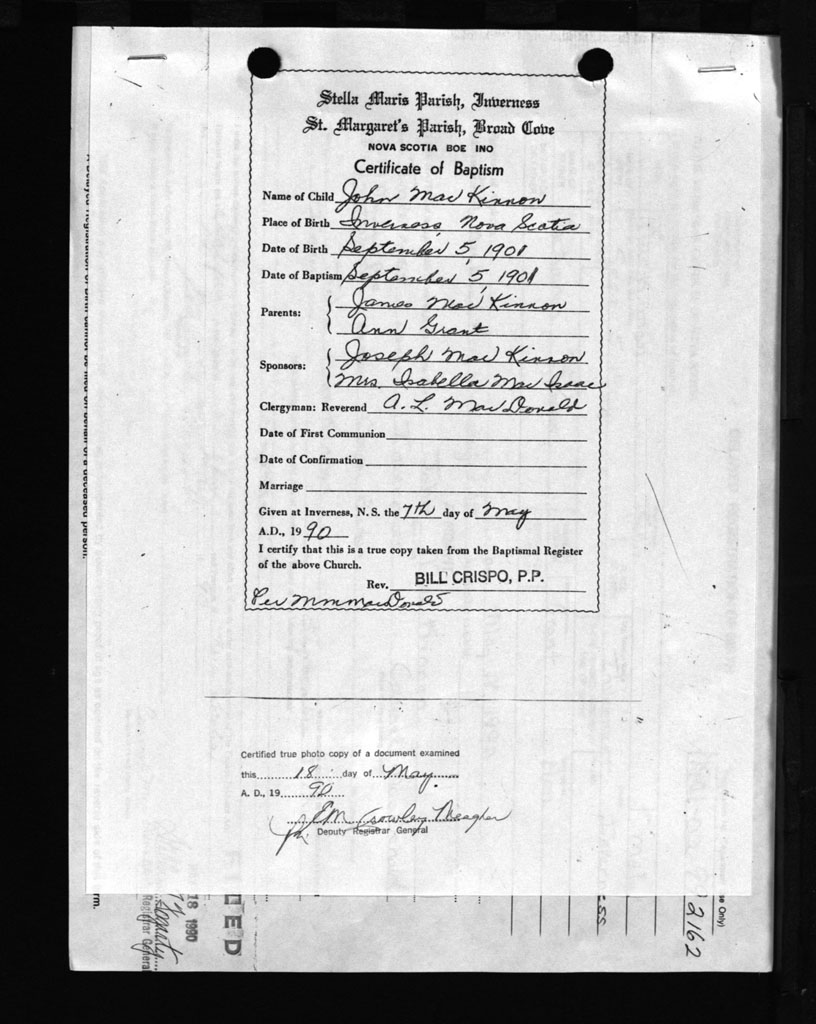 Stella Maris Parish, Inverness
St. Margaret's Parish, Broad Cove
NOVA SCOTIA BOE INO
Certificate of Baptism
Name of Child John MacKinnon
Place of Birth Inverness, Nova Scotia
Date of Birth September 5, 1901
Date of Baptism September 5, 1901
Parents: James MacKinnon
Ann Grant
Sponsors: Joseph MacKinnon
Mrs. Isabella MacIsaac
Clergyman: Reverend A. L. MacDonald
Date of First Communion
Date of Confirmation
Marriage
Given at Inverness, N. S. the 7th day of May
A.D., 19 90
I certify that this is a true copy taken from the Baptismal Register
of the above Church.
Rev. BILL CRISPO, P.P.
Per MacDonald
Certified true photo copy of a document examined
this 18 day of May
A. D., 19 90
Meagher
Deputy Registrar General
of a deceased person.
rm.
18 1990
Deputy
Registrar General
ED
ss
se Only)
2162